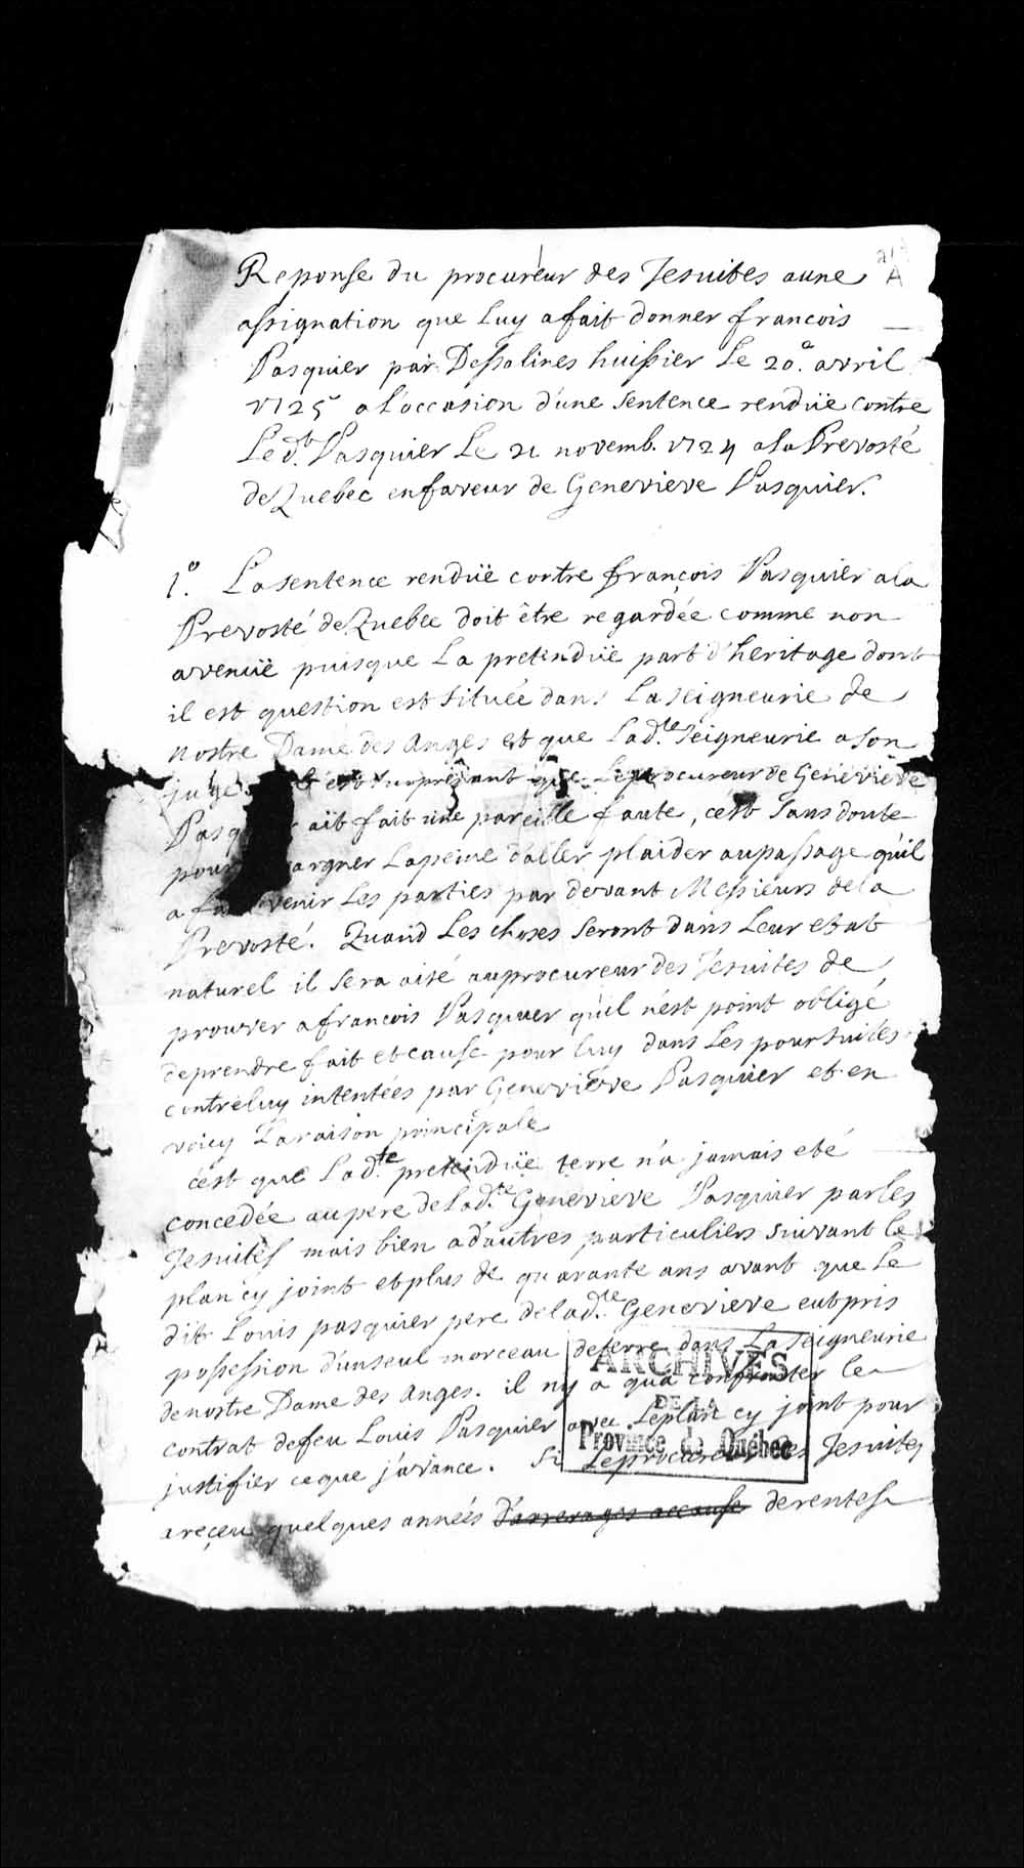 A
Reponse du procureur des Jesuites a une
assignation que luy a fait donner francois
Pasquier par Dessalines huissier le 20e. avril
1725 a l'occasion d'une sentence renduë contre
Led.t Pasquier Le 21 novemb. 1724 a la Prevosté
de Quebec en faveur de Genevieve Pasquier.
1.º La sentence renduë contre françois Pasquier a la
Prevosté de Quebec doit être regardée comme non
avenuë puisque La pretenduë part d'heritage dont
il est question est située dans La seigneurie de
nostre Dame des Anges et que lad.te seigneurie a son
juge est surprenant que Le procureur de Genevieve
Pasq r ait fait une pareille faute, c'est sans doute
pour argner La peine d'aller plaider au passage qu'il
a fa venir Les parties par devant Messieurs de la
Prevosté. Quand Les choses seront dans Leur etat
naturel il sera aisé au procureur des Jesuites de
prouver a francois Pasquier qu'il n'est point obligé
de prendre fait et cause pour luy dans Les poursuites
contre luy intentées par Genevieve Pasquier et en
voicy La raison principale
c'est que Lad.te pretenduë terre n'a jamais eté
concedée au pere de Lad.te Genevieve Pasquier par les
Jesuites mais bien a d'autres particuliers suivant le
plan cy joint et plus de quarante ans avant que Le
dit Louis pasquier pere de lad.te Genevieve eut pris
possession d'un seul morceau de terre dans La Seigneurie
de nostre Dame des Anges. il n'y a qu'a confronter le
contrat de feu Louis Pasquier avec Le plan cy joint pour
justifier ce que j'avance. Si Le procureur des Jesuites
a reçeu quelques années d'arrerages a cause de rentes
ARCHIVES
DE LA
Province de Québec